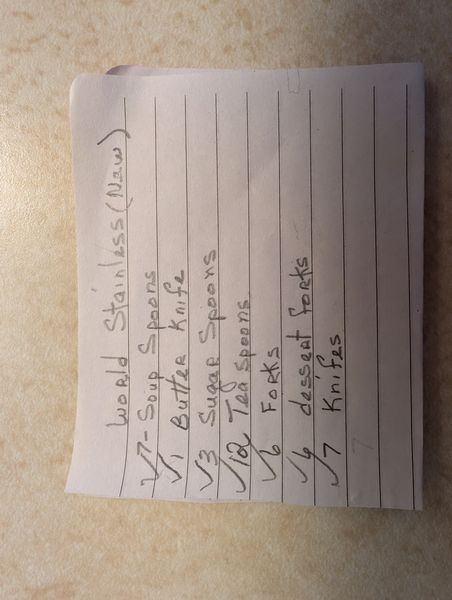 World Stainless (New)
✓7- Soup Spoons
✓1 Butter Knife
✓3 Sugar Spoons
✓12 Tea spoons
✓6 Forks
✓6 dessert forks
✓7 Knifes
7